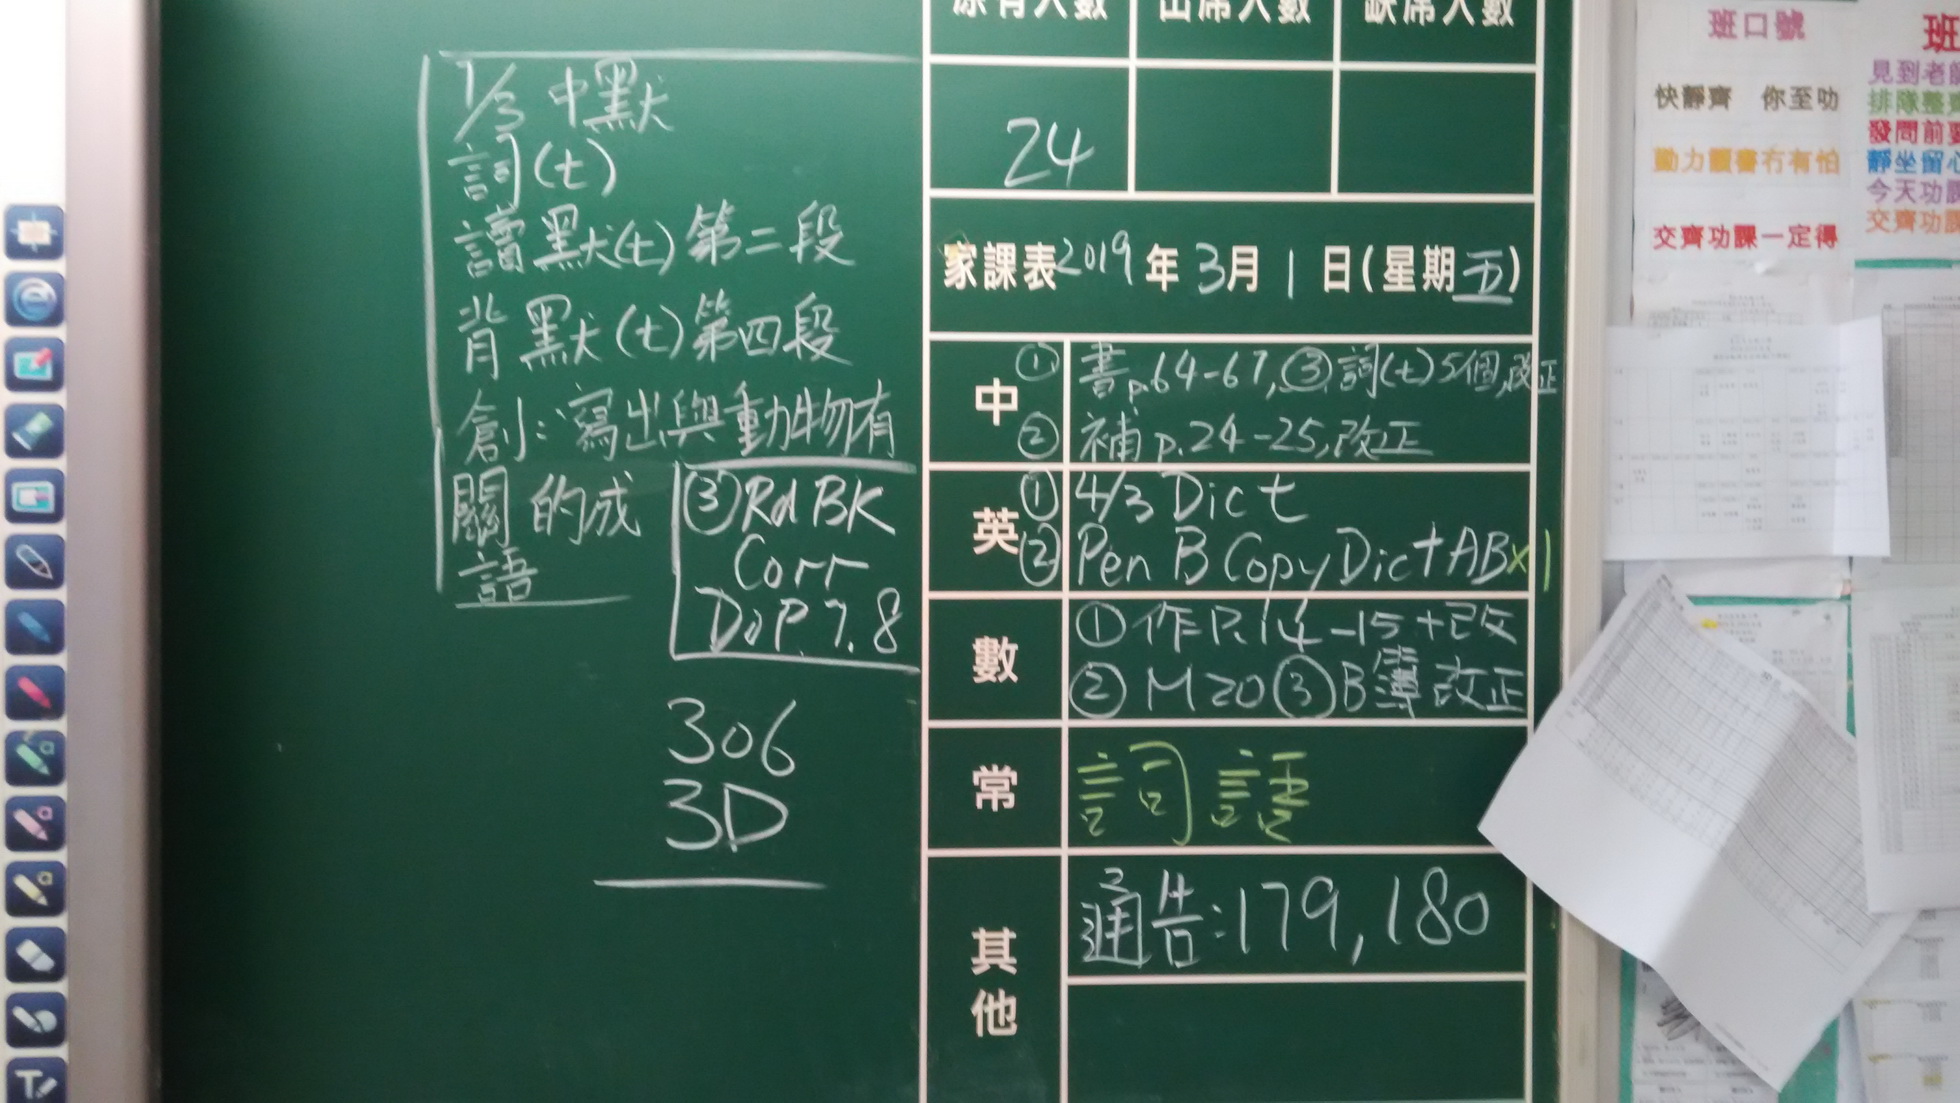 原有人數 出席人數 缺席人數
24
家課表2019年3月1日(星期五)
中
① 書p.64-67,③詞(七)5個,改正
② 補p.24-25,改正
英
① 4/3 Dict
② Pen B Copy Dict AB×1
數
①作P.14-15+改
②M20③B簿改正
常
詞語
其他
通告:179,180
1/3 中默
詞(七)
讀默(七)第二段
背默(七)第四段
創:寫出與動物有
關的成
語
③Rd BK
Corr
Do P.7.8
306
3D
班口號
快靜齊 你至叻
動力讀書冇有怕
交齊功課一定得
班
見到老師
排隊整齊
發問前要
靜坐留心
今天功課
交齊功課